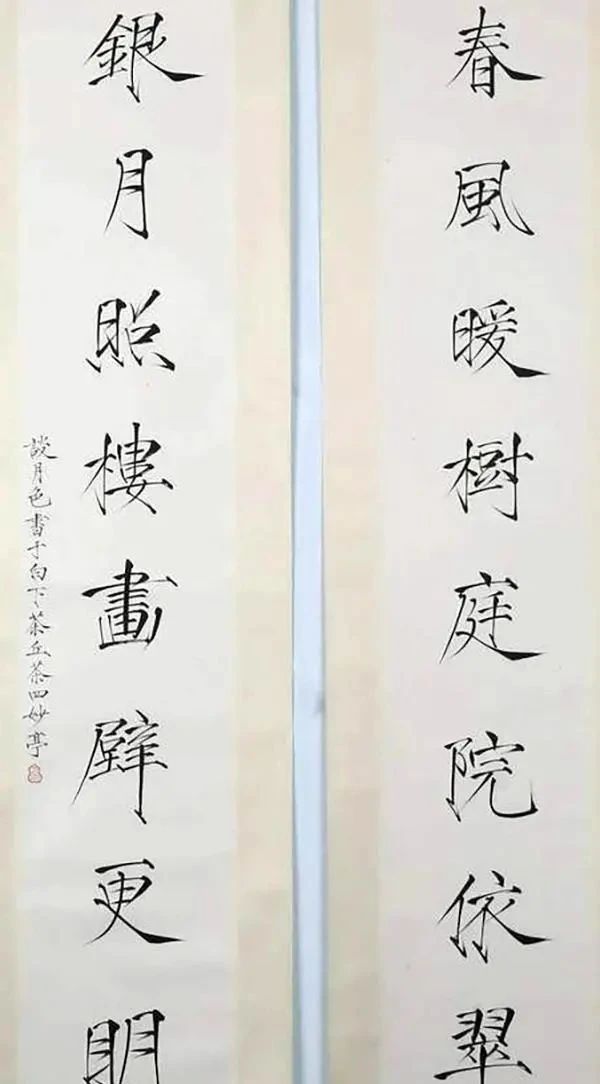 春風暖樹庭院依翠
銀月照樓畫壁更明
談月色書于白下、茶丘茶四妙亭